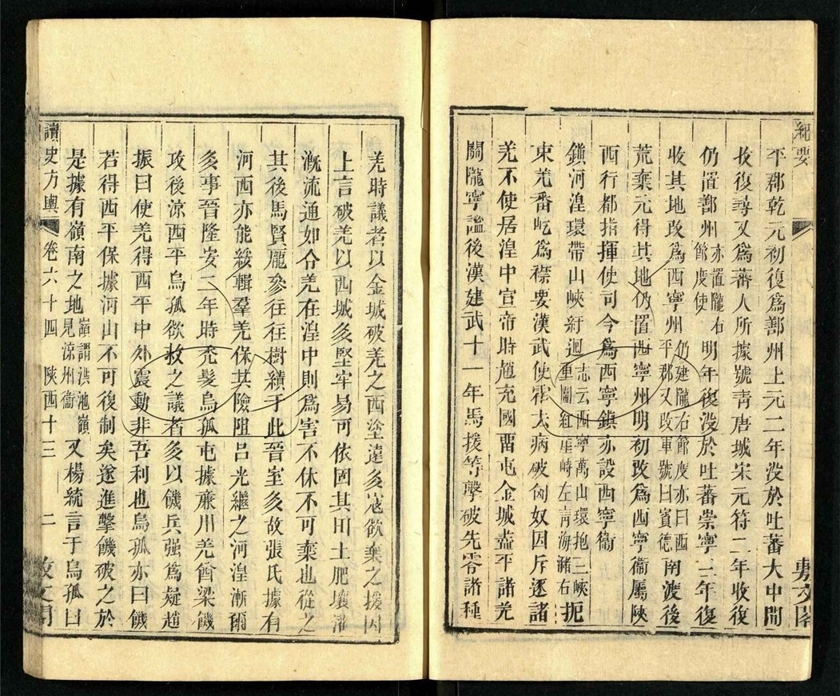 紀要
敷文閣
平郡乾元初復爲鄯州上元二年没於吐蕃大中間
收復尋又爲蕃人所據號靑唐城宋元符二年收復
仍置鄯州亦置隴右節度使明年復没於吐蕃崇寧三年復
收其地改爲西寧州仍建隴右節度亦曰西平郡又改軍號曰賓德南渡後
荒棄元得其地仍置西寧州明初改爲西寧衞屬陝
西行都指揮使司今爲西寧鎮亦設西寧衞
鎮河湟環帶山峽紆迴志云西寧萬山環抱三峽重關紅崖峙左靑海瀦右扼
束羌番屹爲襟要漢武使霍去病破匈奴因斥逐諸
羌不使居湟中宣帝時趙充國畱屯金城盡平諸羌
關隴寧謐後漢建武十一年馬援等擊破先零諸種
羌時議者以金城破羌之西塗遠多寇欲棄之援因
上言破羌以西城多堅牢易可依固其田土肥壤灌
漑流通如令羌在湟中則爲害不休不可棄也從之
其後馬賢龐參往往樹績于此晉室多故張氏據有
河西亦能綏輯羣羌保其險阻呂光繼之河湟漸爾
多事晉隆安二年時禿髮烏孤屯據廉川羌酋梁饑
攻後涼西平烏孤欲救之議者多以饑兵强爲疑趙
振曰使羌得西平中外震動非吾利也烏孤亦曰饑
若得西平保據河山不可復制矣遂進擊饑破之於
是據有嶺南之地嶺謂洪池嶺見涼州衞又楊統言于烏孤曰
讀史方輿 卷六十四 陝西十三 二 敷文閣